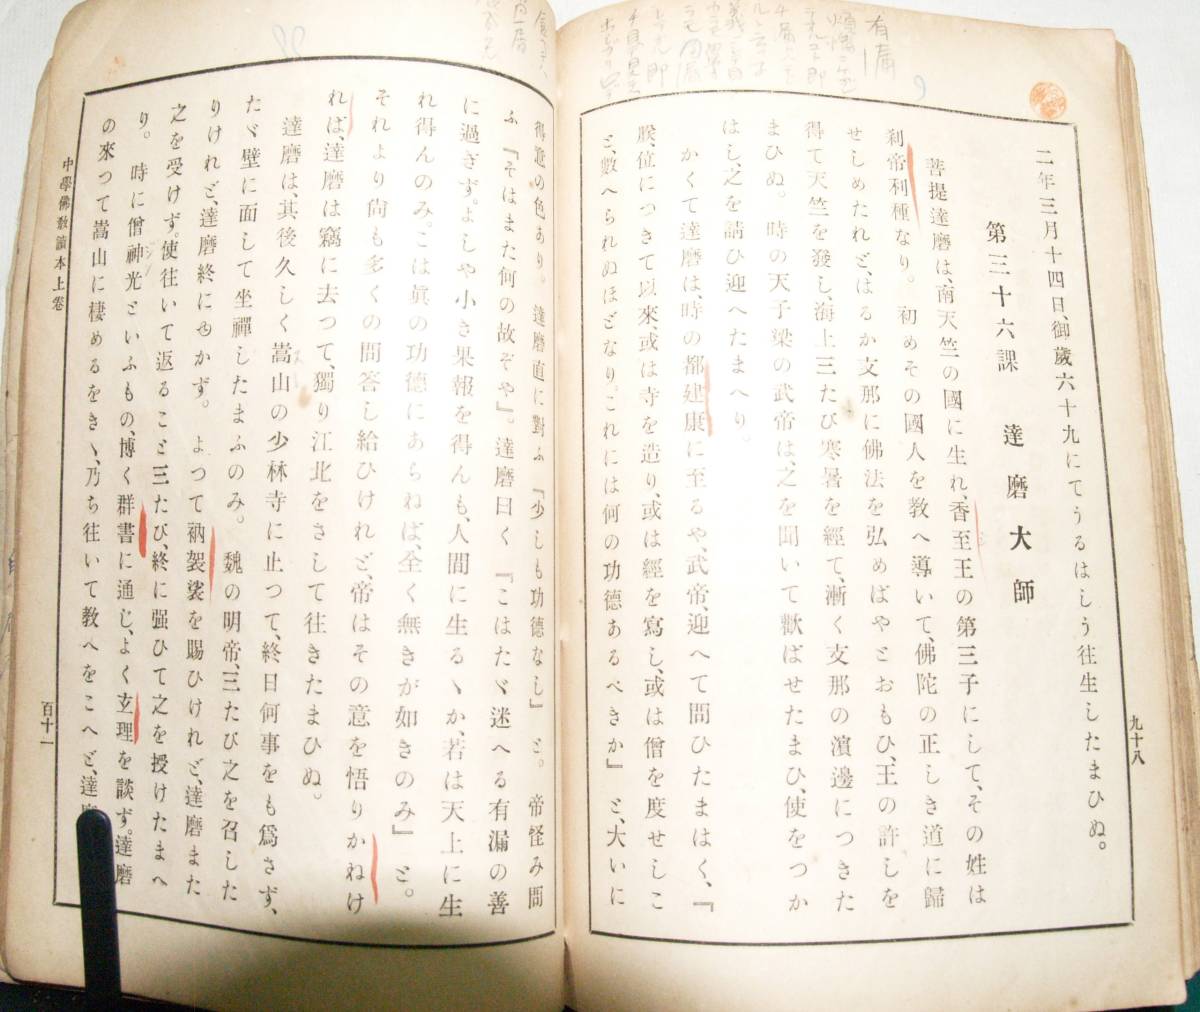 有漏
九十八
二年三月十四日、御歲六十九にてうるはしう往生したまひぬ。
第三十六課　達磨大師
菩提達磨は、南天竺の國に生れ、香至王の第三子にして、その姓は
刹帝利種なり。初めその國人を敎へ導いて、佛陀の正しき道に歸
せしめたれど、はるか支那に佛法を弘めばやとおもひ、王の許しを
得て天竺を發し、海上三たび寒暑を經て、漸く支那の濵邊につきた
まひぬ。時の天子梁の武帝は、之を聞いて歡ばせたまひ、使をつか
はし、之を請ひ迎へたまへり。
かくて達磨は、時の都建康に至るや、武帝、迎へて問ひたまはく、『
朕、位につきて以來或は寺を造り、或は經を寫し、或は僧を度せしこ
と、數へられぬほどなり。これには何の功德あるべきか』と、大いに
得意の色あり。達磨直に對ふ『少しも功德なし』と。帝怪み問
ふ『そはまた何の故ぞや』。達磨曰く『こはたゞ迷へる有漏の善
に過ぎず。よしや小き果報を得んも、人間に生るゝか、若は天上に生
れ得んのみ。こは眞の功德にあらねば、全く無きが如きのみ』と。
それより尙も多くの問答し給ひけれど、帝はその意を悟りかねけ
れば、達磨は竊に去つて、獨り江北をさして往きたまひぬ。
達磨は、其後久しく嵩山の少林寺に止つて、終日何事をも爲さず、
たゞ壁に面して坐禪したまふのみ。魏の明帝、三たび之を召した
りけれど、達磨終にゆかず。よつて衲袈裟を賜ひけれど、達磨また
之を受けず。使往いて返ること三たび、終に强ひて之を授けたまへ
り。時に僧神光といふもの、博く群書に通じ、よく玄理を談ず。達磨
の來つて嵩山に棲めるをきゝ、乃ち往いて敎へをこへど、達
中學佛敎讀本上卷
百十一